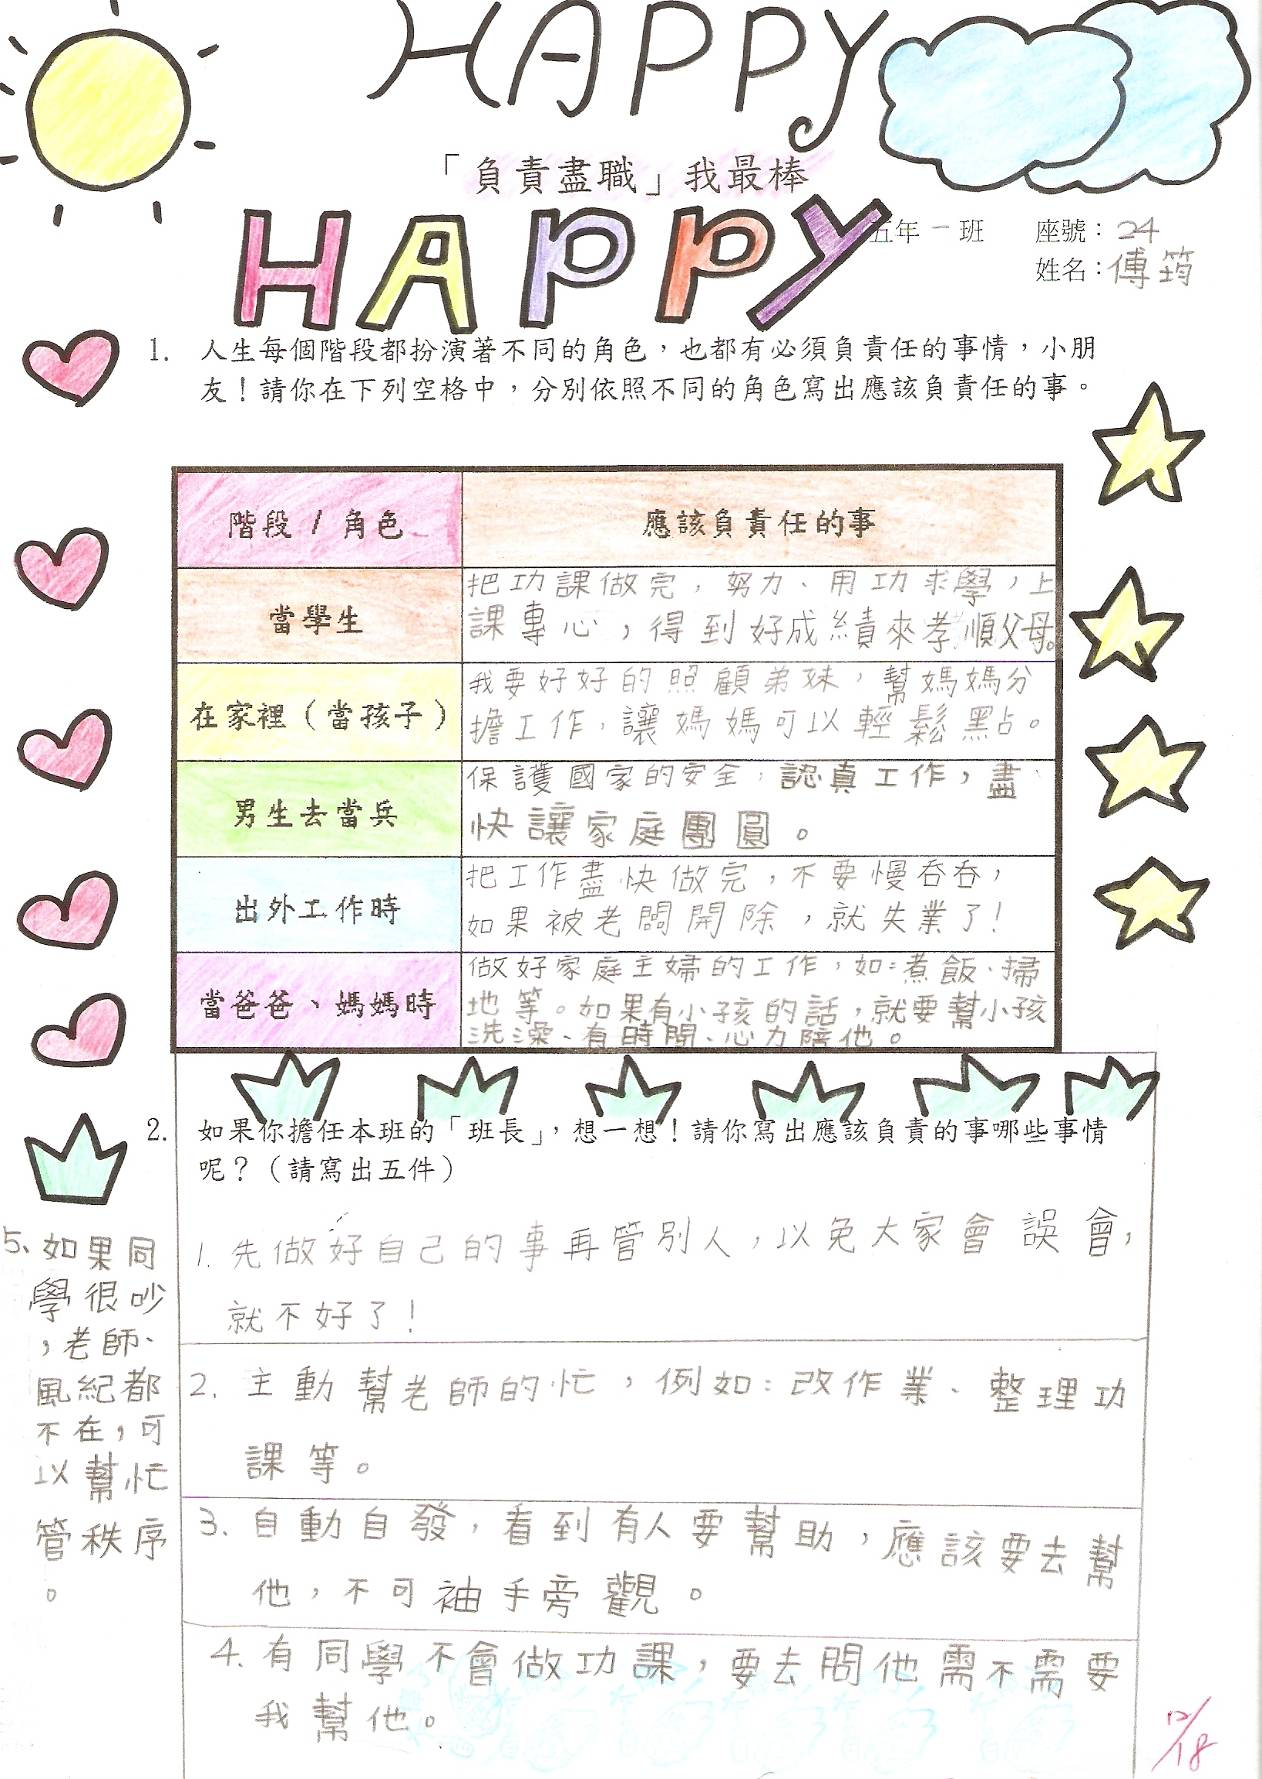 HAPPY
「負責盡職」我最棒
HAPPY
五年一班 座號：24
姓名：傅筠
1. 人生每個階段都扮演著不同的角色，也都有必須負責任的事情，小朋
友！請你在下列空格中，分別依照不同的角色寫出應該負責任的事。
階段 / 角色 應該負責任的事
當學生
把功課做完，努力、用功求學，上
課專心，得到好成績來孝順父母。
在家裡（當孩子）
我要好好的照顧弟妹，幫媽媽分
擔工作，讓媽媽可以輕鬆點。
男生去當兵
保護國家的安全，認真工作，盡
快讓家庭團圓。
出外工作時
把工作盡快做完，不要慢吞吞，
如果被老闆開除，就失業了!
當爸爸、媽媽時
做好家庭主婦的工作，如:煮飯、掃
地等。如果有小孩的話，就要幫小孩
洗澡、有時間、心力陪他。
2. 如果你擔任本班的「班長」，想一想！請你寫出應該負責的事哪些事情
呢？（請寫出五件）
1. 先做好自己的事再管別人，以免大家會誤會，
就不好了!
2. 主動幫老師的忙，例如:改作業、整理功
課等。
3. 自動自發，看到有人要幫助，應該要去幫
他，不可袖手旁觀。
4. 有同學不會做功課，要去問他需不需要
我幫他。
5、如果同
學很吵
，老師、
風紀都
不在，可
以幫忙
管秩序
。
12/18